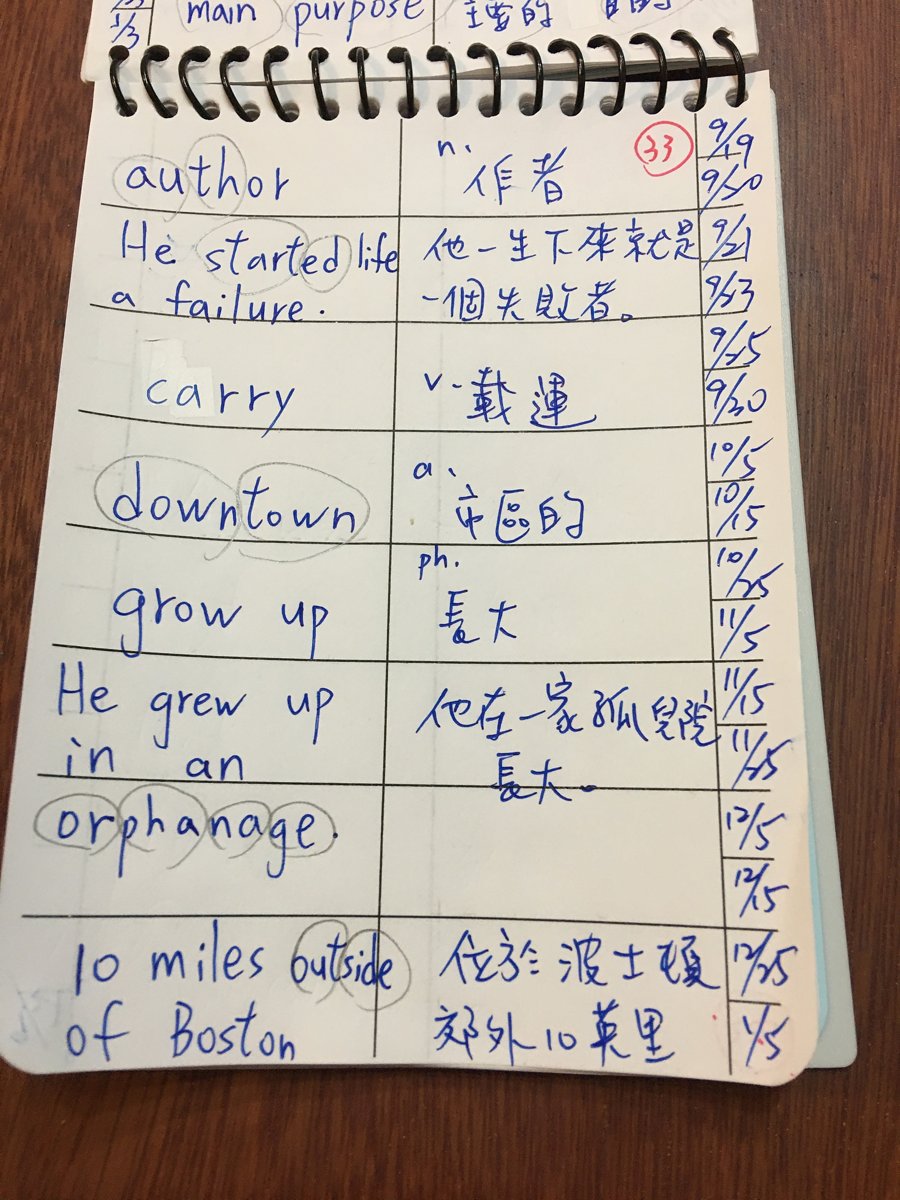 1/3 main purpose 主要的 目的
author n. 作者 33 9/19
9/20
He started life 他一生下來就是 9/21
a failure. 一個失敗者。 9/23
9/25
carry v. 載運 9/30
downtown a. 市區的 10/5
10/15
grow up ph. 長大 10/25
11/5
He grew up 他在一家孤兒院 11/15
in an 長大。 11/25
orphanage. 12/5
12/15
10 miles outside 位於波士頓 12/25
of Boston 郊外10英里 1/5